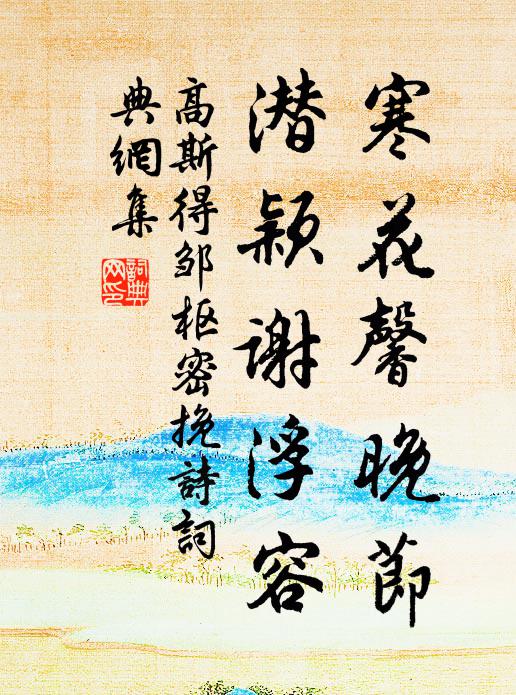 寒花馨晚節
潜颖謝浮容
高斯得邹枢密挽詩詞
典網集
詞典网印